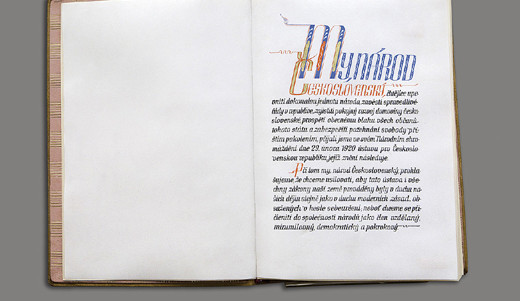 My, NÁROD
ČESKOSLOVENSKÝ, chtějíce upe-
vniti dokonalou jednotu národa, zavésti spravedlivé
řády v republice, zajistiti pokojný rozvoj domoviny česko
slovenské, prospěti obecnému blahu všech občanů
tohoto státu a zabezpečiti požehnání svobody pří-
štím pokolením, přijali jsme ve svém Národním shro-
máždění dne 29. února 1920 ústavu pro Českoslo
venskou republiku, jejíž znění následuje.
Při tom my, národ Československý, prohla
šujeme, že chceme usilovati, aby tato ústava i vše
chny zákony naší země prováděny byly v duchu na-
šich dějin stejně jako v duchu moderních zásad, ob-
sažených v hesle sebeurčení, neboť chceme se při-
členiti do společnosti národů jako člen vzdělaný,
mírumilovný, demokratický a pokrokový